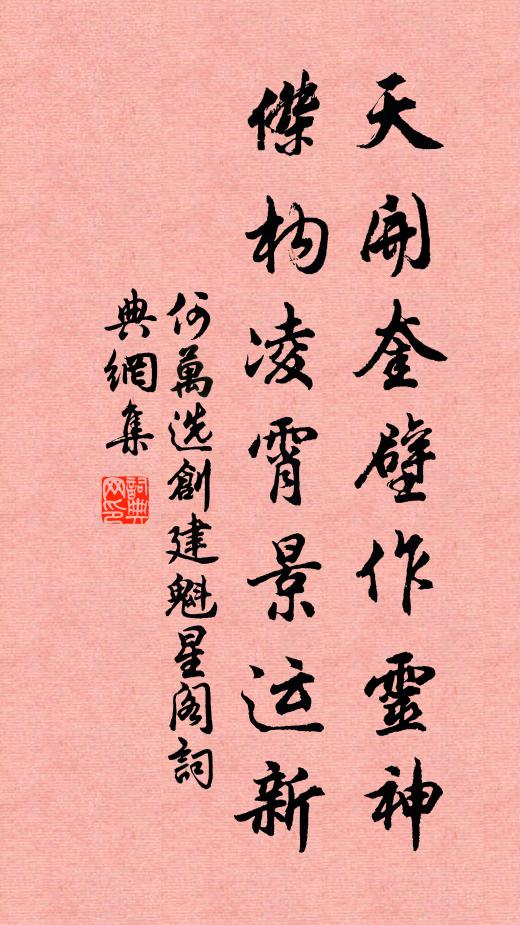 天開奎壁作靈神
傑构凌霄景运新
何萬选創建魁星阁詞
典網集
詞典网印